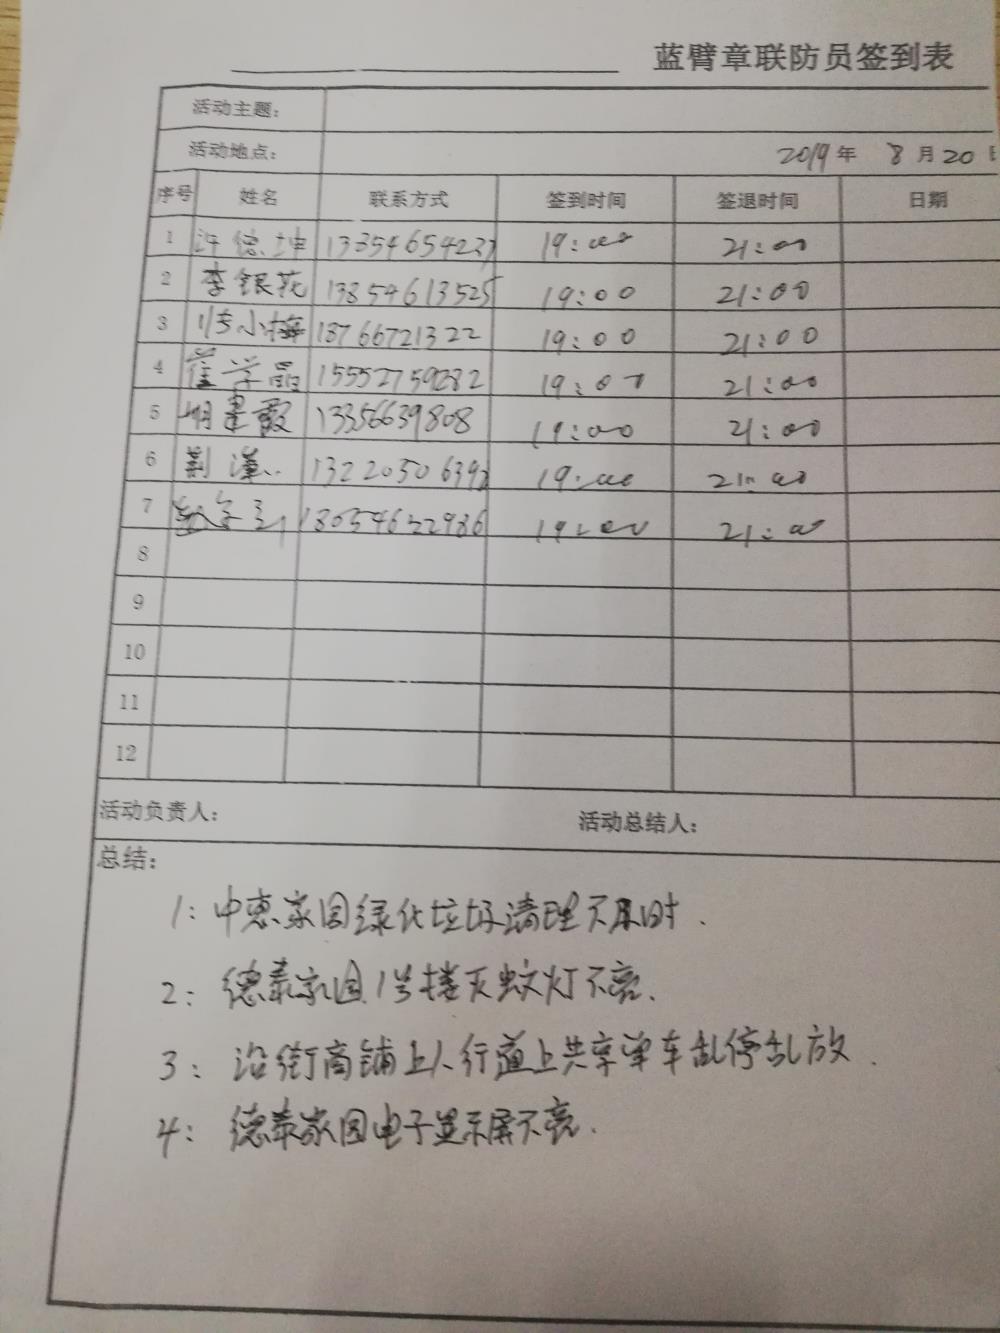 蓝臂章联防员签到表
活动主题:
活动地点: 2019年 8月20日
序号 姓名 联系方式 签到时间 签退时间 日期
1 许德坤 13354654237 19:00 21:00
2 李银花 13854613525 19:00 21:00
3 小梅 13766721322 19:00 21:00
4 崔学晶 15552759282 19:00 21:00
5 胡建 13356639808 19:00 21:00
6 荆 1322050639 19:00 21:00
7 18054622986 19:00 21:00
8
9
10
11
12
活动负责人: 活动总结人:
总结:
1: 中惠家园绿化垃圾清理不及时.
2: 德泰家园1号楼灭蚊灯不亮.
3: 沿街商铺上人行道上共享单车乱停乱放.
4: 德泰家园电子显示屏不亮.